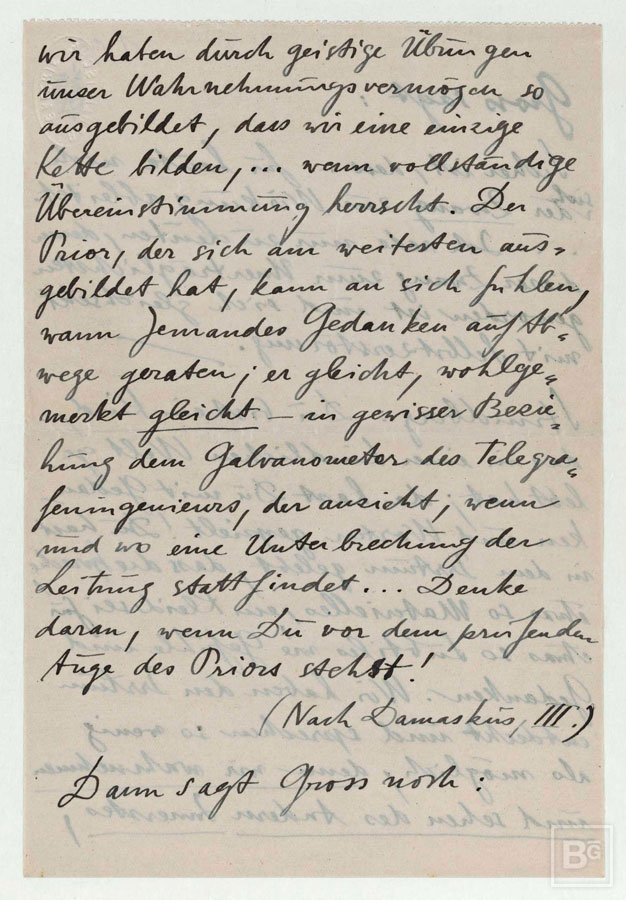 wir haben durch geistige Übungen
unser Wahrnehmungsvermögen so
ausgebildet, dass wir eine einzige
Kette bilden, ... wenn vollständige
Übereinstimmung herrscht. Der
Prior, der sich am weitesten aus=
gebildet hat, kann an sich fühlen,
wann Jemandes Gedanken auf Ab=
wege geraten; er gleicht, wohlge=
merkt gleicht — in gewisser Bezie=
hung dem Galvanometer des Telegra=
feningenieurs, der anzieht, wenn
und wo eine Unterbrechung der
Leitung stattfindet... Denke
daran, wenn Du vor dem prüfenden
Auge des Priors stehst!
(Nach Damaskus, III.)
Dann sagt Gross noch:
BG